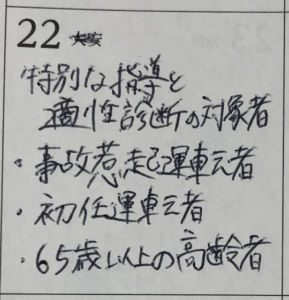 22 大安
特別な指導と
適性診断の対象者
・事故惹起運転者
・初任運転者
・65歳以上の高齢者